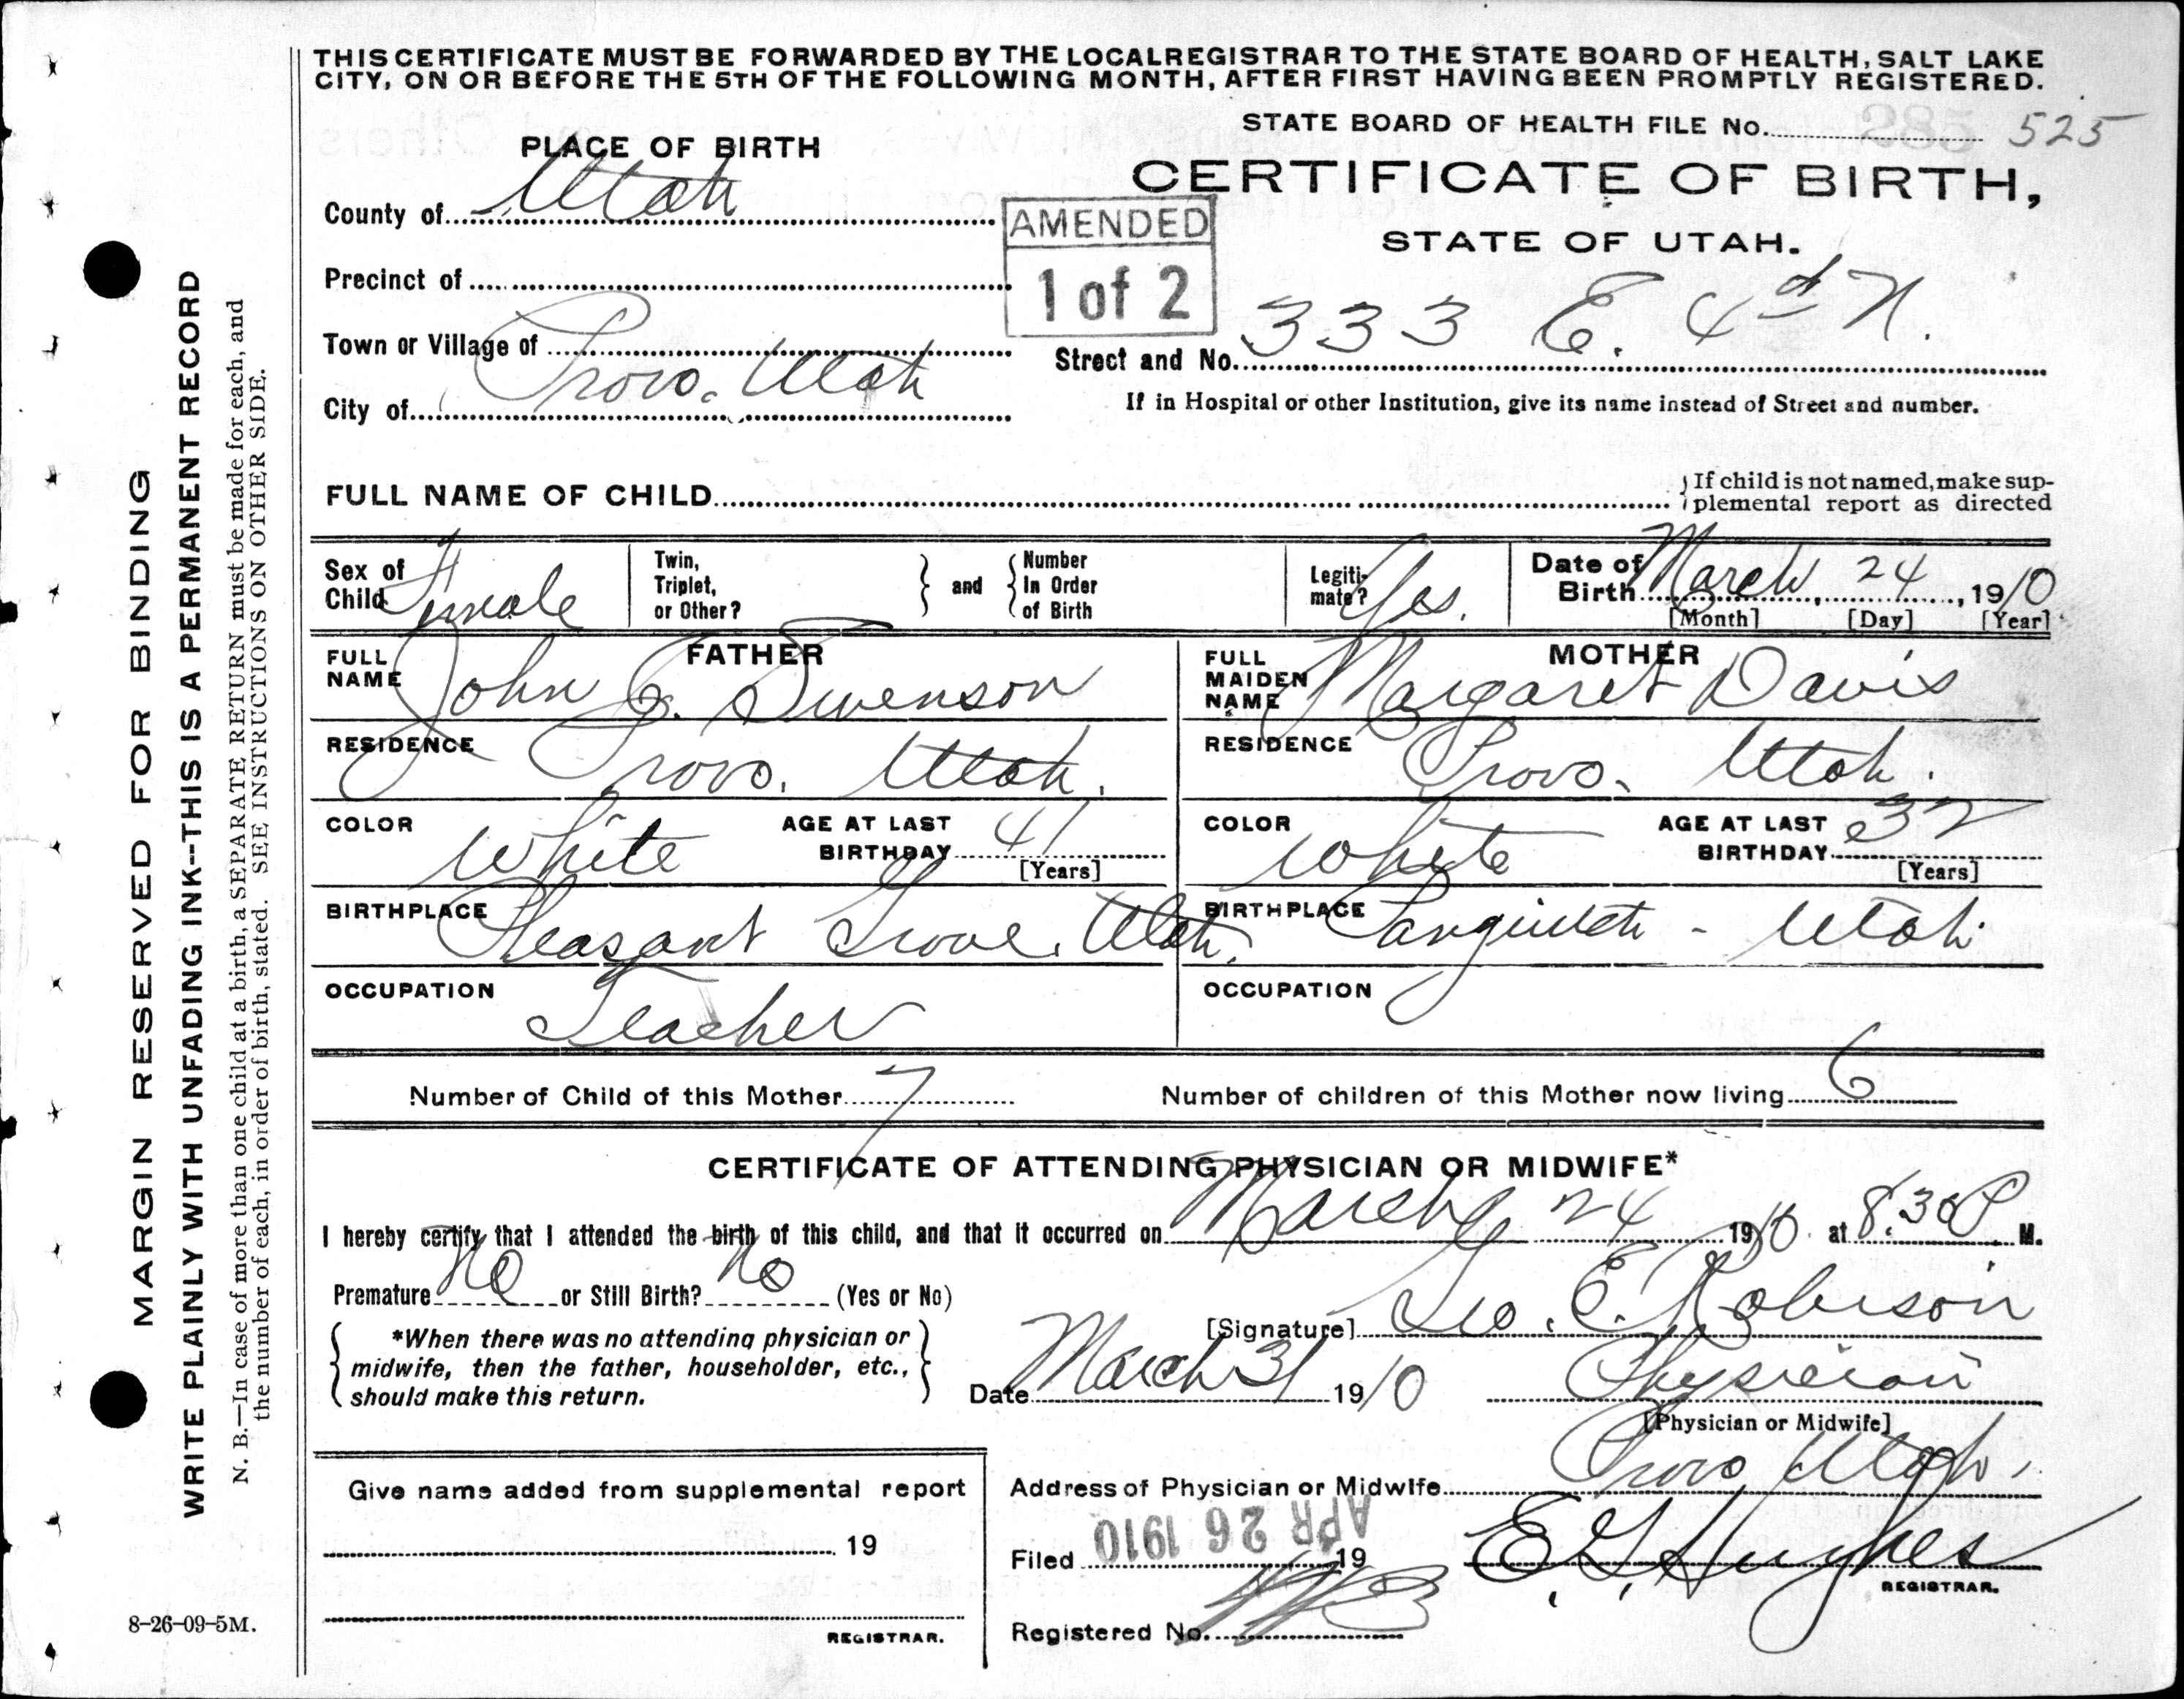 THIS CERTIFICATE MUST BE FORWARDED BY THE LOCAL REGISTRAR TO THE STATE BOARD OF HEALTH, SALT LAKE
CITY, ON OR BEFORE THE 5TH OF THE FOLLOWING MONTH, AFTER FIRST HAVING BEEN PROMPTLY REGISTERED.
STATE BOARD OF HEALTH FILE No. 285 525
PLACE OF BIRTH
CERTIFICATE OF BIRTH,
STATE OF UTAH.
County of Utah
AMENDED
1 of 2
Precinct of
Town or Village of
Street and No. 333 E. 4th N.
City of Provo. Utah
If in Hospital or other Institution, give its name instead of Street and number.
FULL NAME OF CHILD
If child is not named, make sup-
plemental report as directed
Sex of Child Female
Twin, Triplet, or Other?
and
Number In Order of Birth
Legiti-mate? Yes.
Date of Birth March, 24, 1910
[Month] [Day] [Year]
FATHER
FULL NAME John J. Swenson
MOTHER
FULL MAIDEN NAME Margaret Davis
RESIDENCE Provo. Utah.
RESIDENCE Provo. Utah.
COLOR White AGE AT LAST BIRTHDAY 41 [Years]
COLOR White AGE AT LAST BIRTHDAY 32 [Years]
BIRTHPLACE Pleasant Grove. Utah.
BIRTHPLACE Panguitch - Utah.
OCCUPATION Teacher
OCCUPATION
Number of Child of this Mother 7
Number of children of this Mother now living 6
CERTIFICATE OF ATTENDING PHYSICIAN OR MIDWIFE*
I hereby certify that I attended the birth of this child, and that it occurred on March 24 1910 at 8:30 P. M.
Premature No or Still Birth? No (Yes or No)
*When there was no attending physician or
midwife, then the father, householder, etc.,
should make this return.
[Signature] Geo. E. Robison
Date March 31 1910
Physician
[Physician or Midwife]
Give name added from supplemental report
19
REGISTRAR.
Address of Physician or Midwife Provo Utah.
Filed APR 26 1910 19
E. G. Hughes
REGISTRAR.
Registered No.
8-26-09-5M.
MARGIN RESERVED FOR BINDING
WRITE PLAINLY WITH UNFADING INK--THIS IS A PERMANENT RECORD
N. B.—In case of more than one child at a birth, a SEPARATE RETURN must be made for each, and
the number of each, in order of birth, stated. SEE INSTRUCTIONS ON OTHER SIDE.